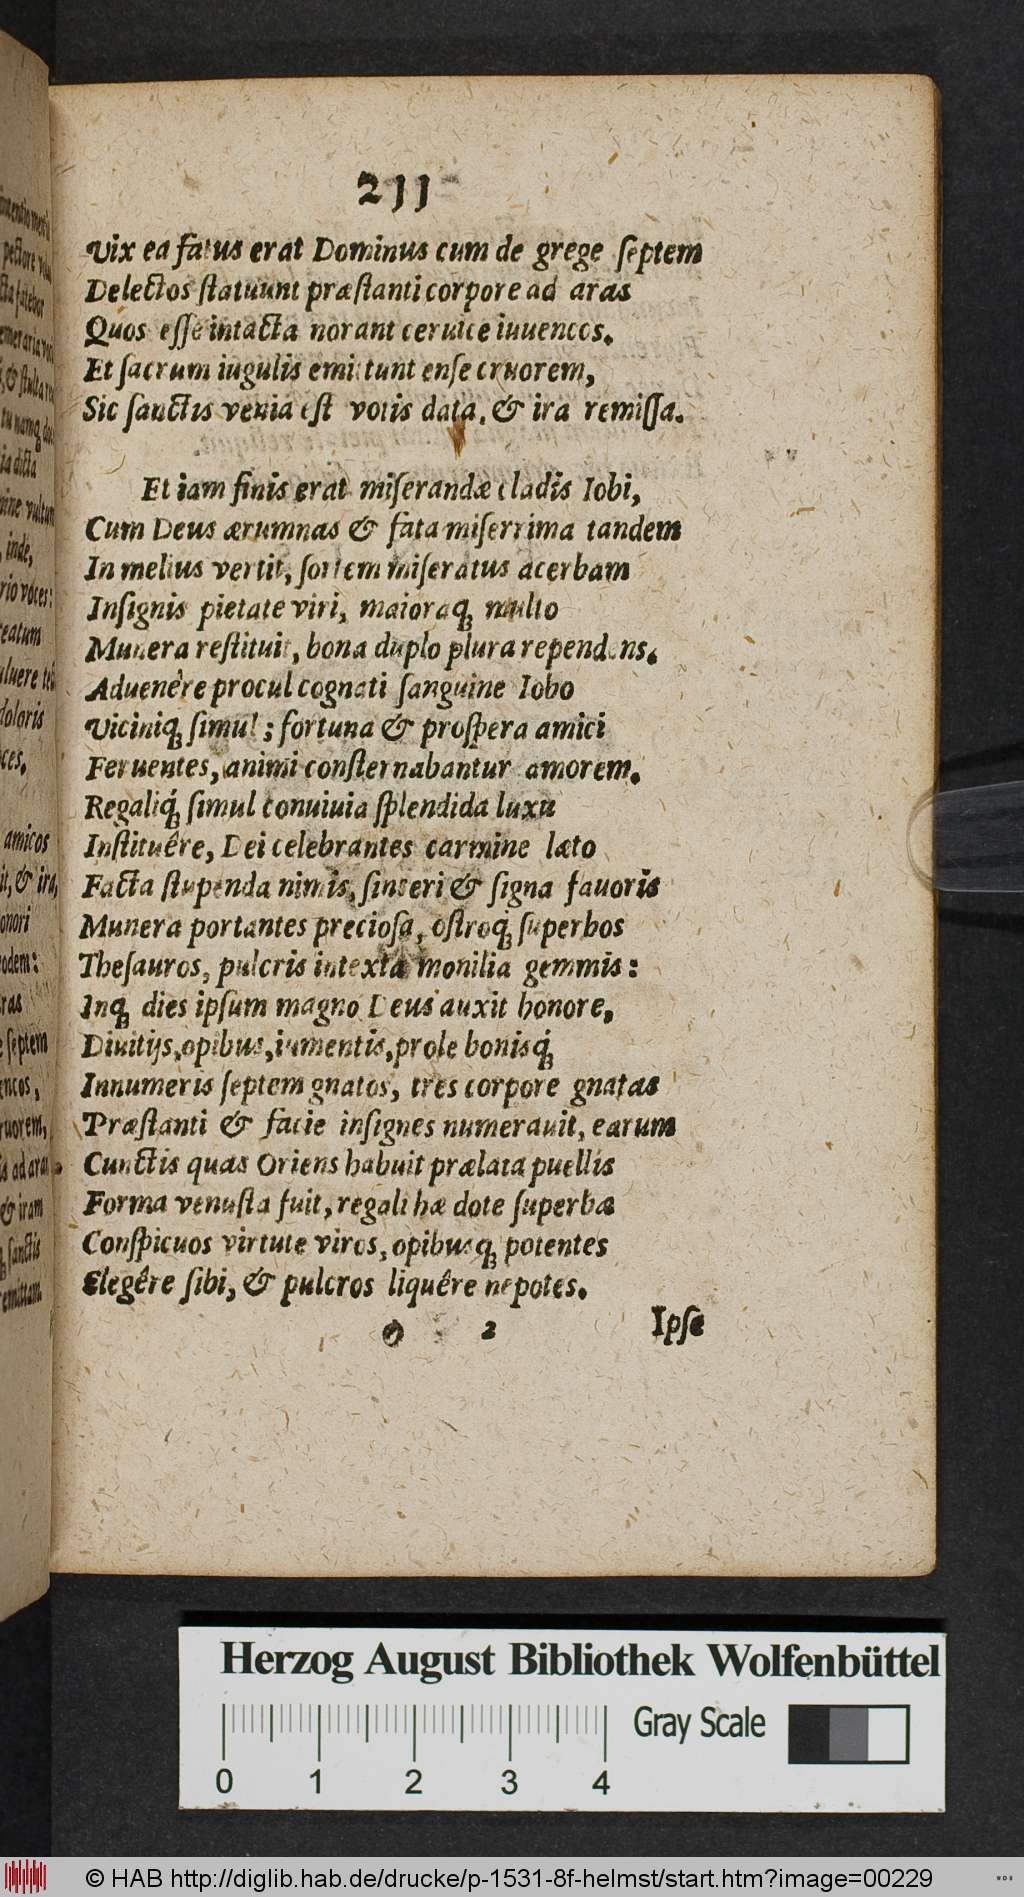 211
Vix ea fatus erat Dominus cum de grege ſeptem
Delectos ſtatuunt præſtanti corpore ad aras
Quos eſſe intacta norant ceruice iuuencos.
Et ſacrum iugulis emittunt enſe cruorem,
Sic ſanctis venia eſt votis data, & ira remiſſa.
Et iam finis erat miſerandæ cladis Iobi,
Cum Deus ærumnas & fata miſerrima tandem
In melius vertit, ſortem miſeratus acerbam
Inſignis pietate viri, maioraq́; multo
Munera reſtituit, bona duplo plura rependens.
Aduenêre procul cognati ſanguine Iobo
Viciniq́; ſimul; fortuna & proſpera amici
Feruentes, animi conſternabantur amorem.
Regaliq́; ſimul conuiuia ſplendida luxu
Inſtituêre, Dei celebrantes carmine læto
Facta ſtupenda nimis, ſinceri & ſigna fauoris
Munera portantes precioſa, oſtroq́; ſuperbos
Theſauros, pulcris intexta monilia gemmis:
Inq́; dies ipſum magno Deus auxit honore,
Diuitijs, opibus, iumentis, prole bonisq́;
Innumeris ſeptem gnatos, tres corpore gnatas
Præſtanti & facie inſignes numerauit, earum
Cunctis quas Oriens habuit prælata puellis
Forma venuſta fuit, regali hæ dote ſuperbæ
Conſpicuos virtute viros, opibusq́; potentes
Elegêre ſibi, & pulcros liquêre nepotes.
O 2 Ipſe
amicos
onori
inde,
ſeptem
Herzog August Bibliothek Wolfenbüttel
Gray Scale
0 1 2 3 4
© HAB http://diglib.hab.de/drucke/p-1531-8f-helmst/start.htm?image=00229